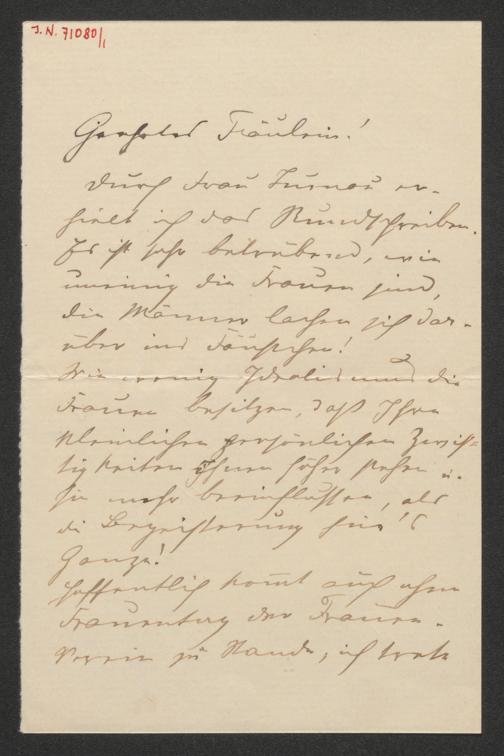 J. N. 71080/1
Geehrtes Fräulein!
Durch Frau Turnau er-
hielt ich das Rundschreiben.
Es ist sehr betrübend, wie
uneinig die Frauen sind,
die Männer lachen sich dar-
über ins Fäustchen!
Wie wenig Idealismus die
Frauen besitzen, daß Ihre
kleinlichen persönlichen Zwist-
tigkeiten Ihnen höher stehen u.
sie mehr beeinflussen, als
die Begeisterung für's
Ganze!
Hoffentlich kommt auch ohne
Frauentag der Frauen-
Verein zu Stande, ich trete